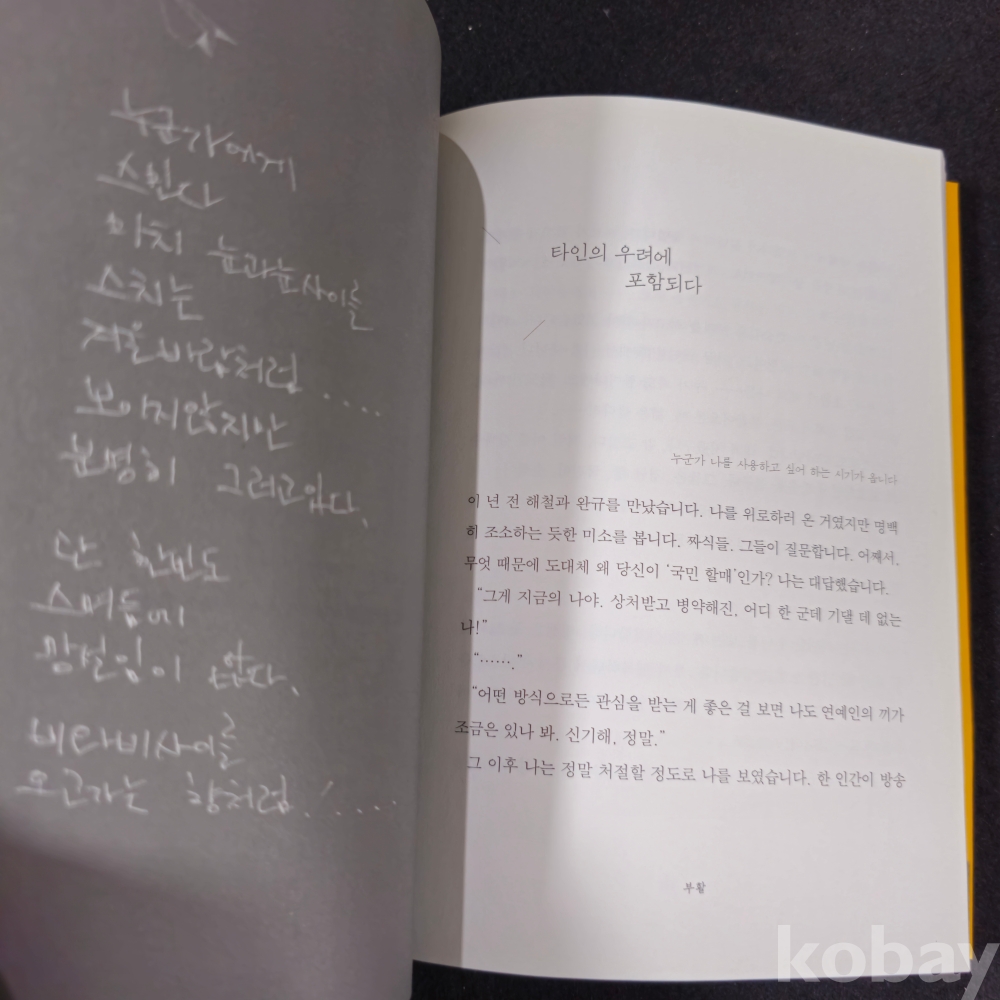 누군가에게
스민다
마치 눈과눈사이를
스치는
겨울바람처럼....
보이지않지만
분명히 그러고있다.
단 한번도
스며듬에
망설임이 없다.
비와비사이를
오고가는 향처럼!....
타인의 우려에
포함되다
누군가 나를 사용하고 싶어 하는 시기가 옵니다
이 년 전 해철과 완규를 만났습니다. 나를 위로하러 온 거였지만 명백
히 조소하는 듯한 미소를 봅니다. 짜식들. 그들이 질문합니다. 어째서,
무엇 때문에 도대체 왜 당신이 ‘국민 할매’인가? 나는 대답했습니다.
“그게 지금의 나야. 상처받고 병약해진, 어디 한 군데 기댈 데 없는
나!”
“…….”
“어떤 방식으로든 관심을 받는 게 좋은 걸 보면 나도 연예인의 끼가
조금은 있나 봐. 신기해, 정말.”
그 이후 나는 정말 처절할 정도로 나를 보였습니다. 한 인간이 방송
부활
kobay